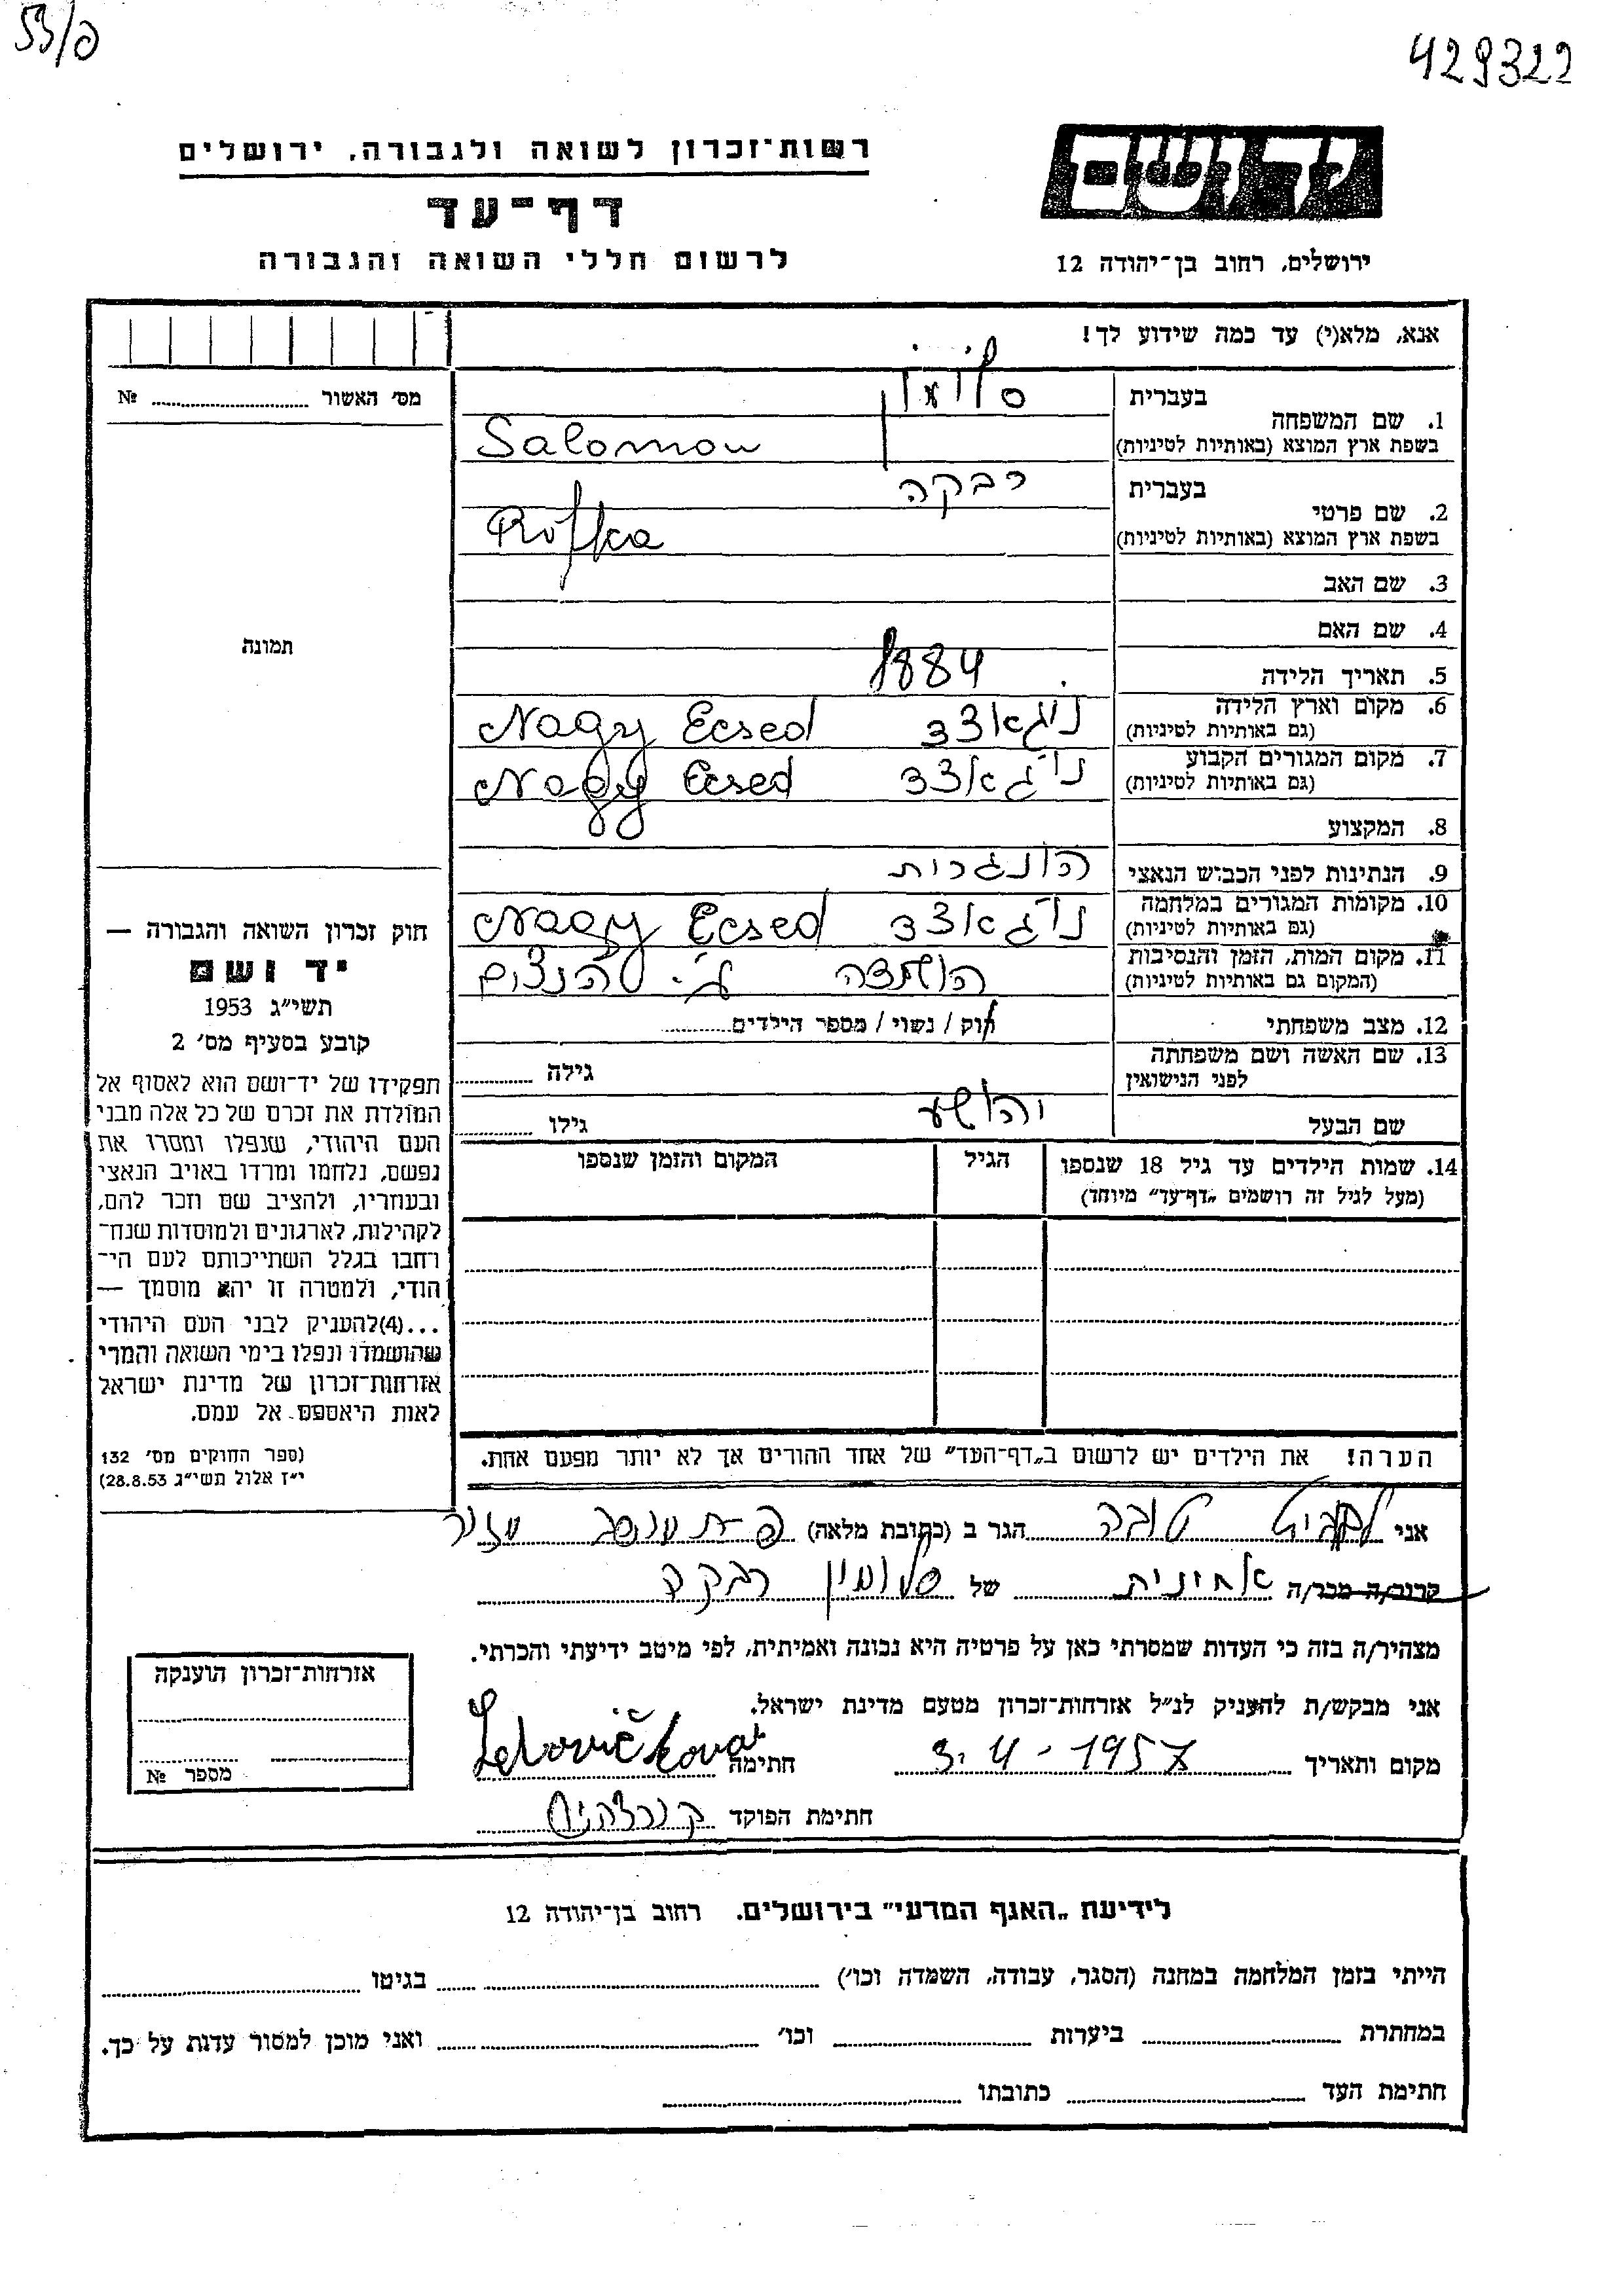 53/פ
429322
יד ושם
ירושלים, רחוב בן־יהודה 12
רשות־זכרון לשואה ולגבורה, ירושלים
דף־עד
לרשום חללי השואה והגבורה
אנא, מלא(י) עד כמה שידוע לך!
מס׳ האשור № ........
תמונה
חוק זכרון השואה והגבורה —
יד ושם
תשי״ג 1953
קובע בסעיף מס׳ 2
תפקידו של יד־ושם הוא לאסוף אל
המולדת את זכרם של כל אלה מבני
העם היהודי, שנפלו ומסרו את
נפשם, נלחמו ומרדו באויב הנאצי
ובעוזריו, ולהציב שם וזכר להם,
לקהילות, לארגונים ולמוסדות שנח־
רחבו בגלל השתייכותם לעם הי־
הודי, ולמטרה זו יהא מוסמך —
...(4)להעניק לבני העם היהודי
שהושמדו ונפלו בימי השואה והמרי
אזרחות־זכרון של מדינת ישראל
לאות היאספם אל עמם.
(ספר החוקים מס׳ 132
י״ז אלול תשי״ג 28.8.53)
1. שם המשפחה
בעברית סלומון
בשפת ארץ המוצא (באותיות לטיניות) Salomon
2. שם פרטי
בעברית רבקה
בשפת ארץ המוצא (באותיות לטיניות) Rifka
3. שם האב
4. שם האם
5. תאריך הלידה 1884
6. מקום וארץ הלידה
(גם באותיות לטיניות) ניגאצד Nagy Ecsed
7. מקום המגורים הקבוע
(גם באותיות לטיניות) ניגאצד Nagy Ecsed
8. המקצוע
9. הנתינות לפני הכביש הנאצי הונגרית
10. מקומות המגורים במלחמה
(גם באותיות לטיניות) ניגאצד Nagy Ecsed
11. מקום המות, הזמן והנסיבות
(המקום גם באותיות לטיניות) הושמדה ע״י הנצים
12. מצב משפחתי רוק / נשוי / מספר הילדים........
13. שם האשה ושם משפחתה
לפני הנישואין גילה ........
שם הבעל יהושע גילו ........
14. שמות הילדים עד גיל 18 שנספו הגיל המקום והזמן שנספו
(מעל לגיל זה רושמים „דף־עד״ מיוחד)
הערה! את הילדים יש לרשום ב„דף־העד״ של אחד ההורים אך לא יותר מפעם אחת.
אני טובה הגר ב (כתובת מלאה)
קרוב/ה מכר/ה של סלומון רבקה
מצהיר/ה בזה כי העדות שמסרתי כאן על פרטיה היא נכונה ואמיתית, לפי מיטב ידיעתי והכרתי.
אני מבקש/ת להעניק לנ״ל אזרחות־זכרון מטעם מדינת ישראל.
מקום ותאריך 3.4-1957 חתימה
חתימת הפוקד
אזרחות־זכרון הוענקה
מספר №
לידיעת „האגף המדעי״ בירושלים. רחוב בן־יהודה 12
הייתי בזמן המלחמה במחנה (הסגר, עבודה, השמדה וכו׳) ........ בגיטו ........
במחתרת ........ ביערות ........ וכו׳ ........ ואני מוכן למסור עדות על כך.
חתימת העד ........ כתובתו ........